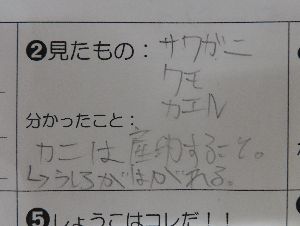 ❷見たもの：サワガニ
クモ
カエル
分かったこと：
カニは産卵すること。
↳うしろがはがれる。
❺しょうこはコレだ！！